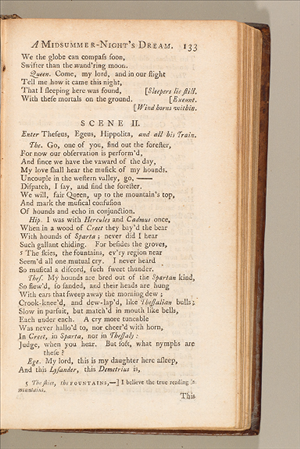 A MIDSUMMER-NIGHT'S DREAM. 133
We the globe can compaſs ſoon,
Swifter than the wand'ring moon.
Queen. Come, my lord, and in our flight
Tell me how it came this night,
That I ſleeping here was found, [Sleepers lie ſtill.
With theſe mortals on the ground. [Exeunt.
[Wind horns within.
SCENE II.
Enter Theſeus, Egeus, Hippolita, and all his Train.
The. Go, one of you, find out the foreſter,
For now our obſervation is perform'd,
And ſince we have the vaward of the day,
My love ſhall hear the muſick of my hounds.
Uncouple in the weſtern valley, go,——
Diſpatch, I ſay, and find the foreſter.
We will, fair Queen, up to the mountain's top,
And mark the muſical confuſion
Of hounds and echo in conjunction.
Hip. I was with Hercules and Cadmus once,
When in a wood of Creet they bay'd the bear
With hounds of Sparta; never did I hear
Such gallant chiding. For beſides the groves,
5 The ſkies, the fountains, ev'ry region near
Seem'd all one mutual cry. I never heard
So muſical a diſcord, ſuch ſweet thunder.
Theſ. My hounds are bred out of the Spartan kind,
So flew'd, ſo ſanded, and their heads are hung
With ears that ſweep away the morning dew;
Crook-knee'd, and dew-lap'd, like Theſſalian bulls;
Slow in purſuit, but match'd in mouth like bells,
Each under each. A cry more tuneable
Was never hallo'd to, nor cheer'd with horn,
In Creet, in Sparta, nor in Theſſaly:
Judge, when you hear. But ſoft, what nymphs are
theſe?
Ege. My lord, this is my daughter here aſleep,
And this Lyſander, this Demetrius is,
5 The ſkies, the FOUNTAINS,—] I believe the true reading is
mountains.
This